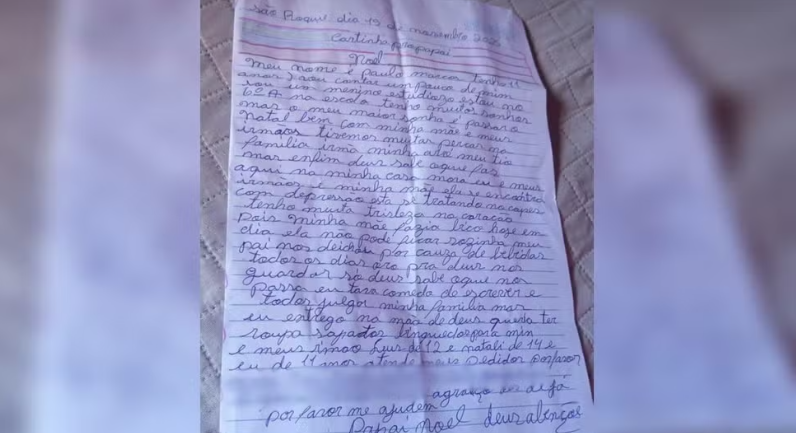 são Roque dia 19 de novembro 20
Cartinha pra papai
Noel
Meu nome é paulo marcos tenho 11
anos vou contar um pouco de mim
sou um menino estudiozo estou no
6º A na escola tenho muitos sonhos
mas o meu maior sonho é passar o
natal bem com minha mãe e meus
irmãos tivemos muitas percas na
família irmã minha avó meu tio
mas enfim deus sabe oque faz
aqui na minha casa mora eu e meus
irmãos e minha mãe ela se encontra
com depressão esta se teatando no capes
tenho muita tristeza no coração
pois minha mãe fazia hoje em
dia ela não pode ficar sozinha meu
pai nos deichou por cauza de bebidas
todos os dias oro pra deus nos
guardar só deus sabe oque nos
passa eu to com de escrever e
todos julgor minha família mas
eu entrego na mão de deus queria ter
roupa sapatos por min
e meus irmao de 12 e natali de 14 e
eu de 11 anos atende meus pedidos por favor
agradeço
por favor me ajudem
Papai Noel deus abençoe